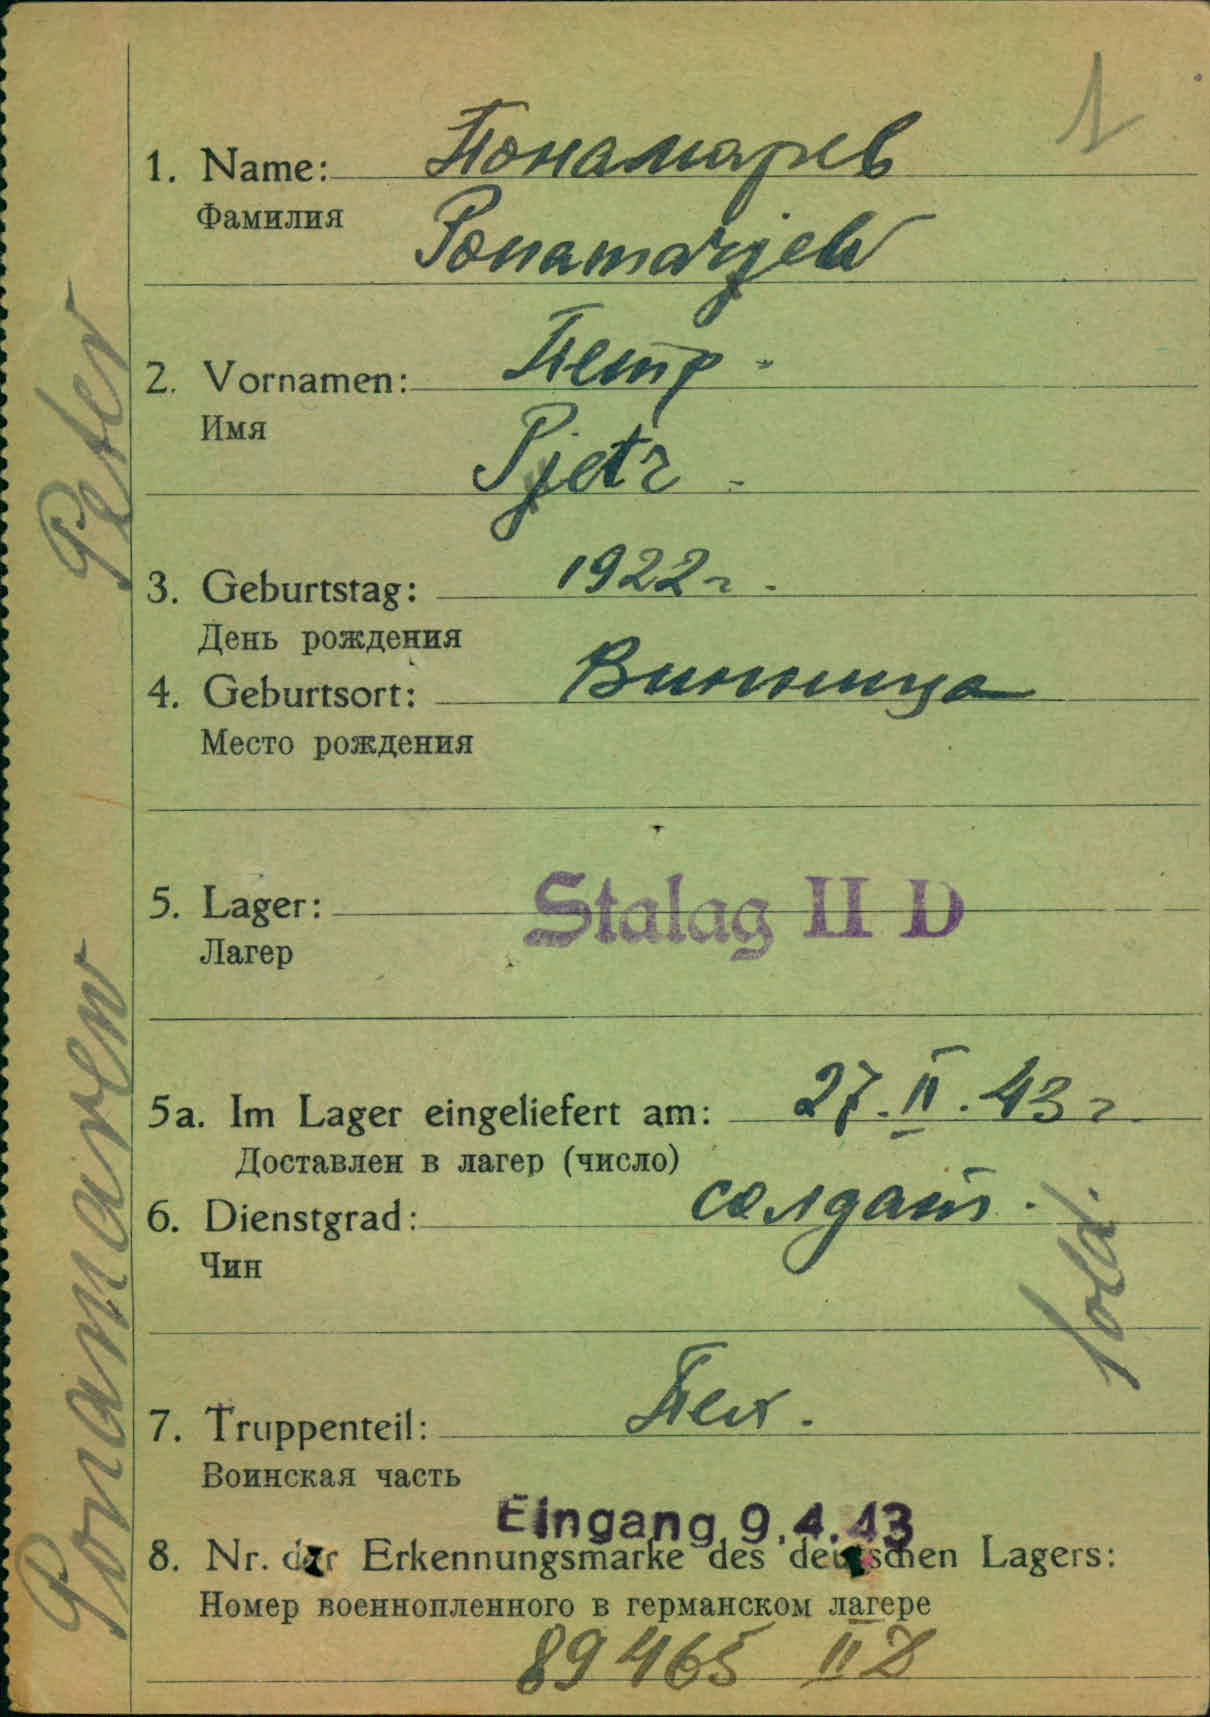 1
1. Name: Понамарев
Фамилия
Ponamarjew
2. Vornamen: Петр
Имя
Pjetr
3. Geburtstag: 1922 г.
День рождения
4. Geburtsort: Винница
Место рождения
5. Lager: Stalag II D
Лагер
5a. Im Lager eingeliefert am: 27. II. 43 г
Доставлен в лагер (число)
6. Dienstgrad: солдат.
Чин
Sold.
7. Truppenteil: Пех.
Воинская часть
Eingang 9.4.43
8. Nr. der Erkennungsmarke des deutschen Lagers:
Номер военнопленного в германском лагере
89465 II D
Ponamarew Peter